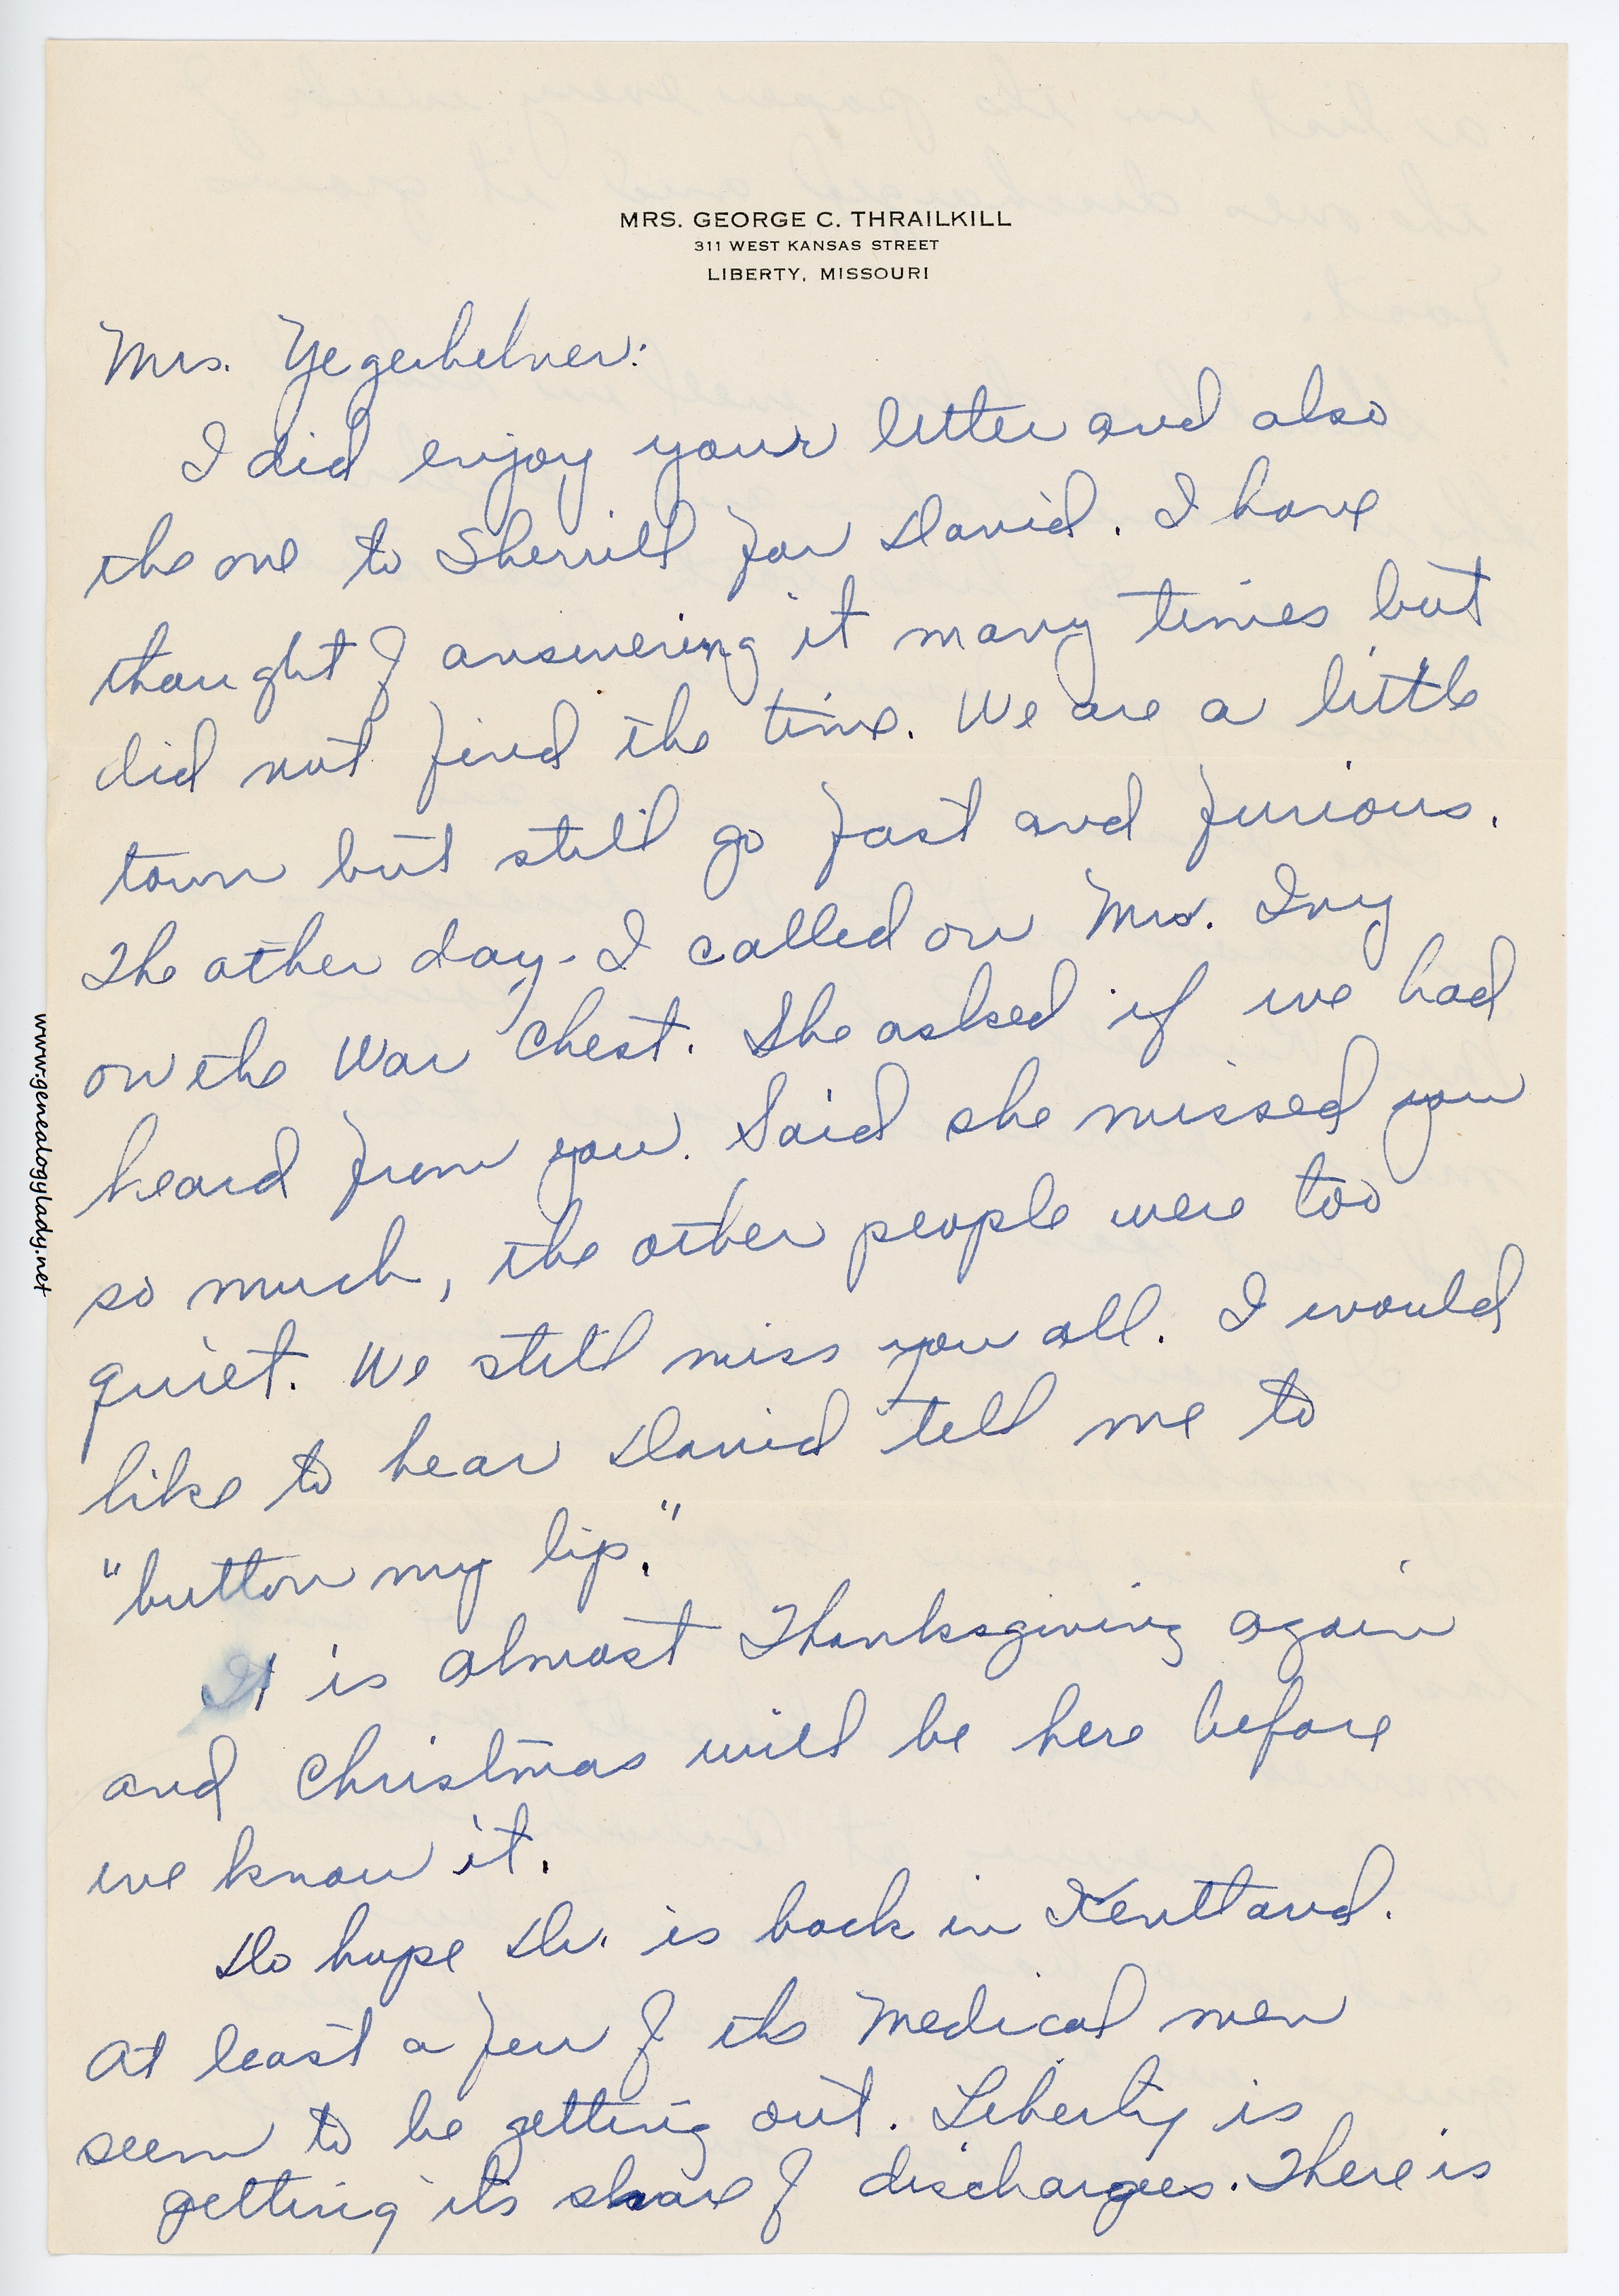 MRS. GEORGE C. THRAILKILL
311 WEST KANSAS STREET
LIBERTY, MISSOURI
Mrs. Yegerhelner:
I did enjoy your letter and also
the one to Sherrill for David. I have
thought of answering it many times but
did not find the time. We are a little
town but still go fast and furious.
The other day - I called on Mrs. Ivy
on the War Chest. She asked if we had
heard from you. Said she missed you
so much, the other people were too
quiet. We still miss you all. I would
like to hear David tell me to
"button my lip."
It is almost Thanksgiving again
and Christmas will be here before
we know it.
Do hope Dr. is back in Kentland.
At least a few of the medical men
seem to be getting out. Liberty is
getting its share of discharges. There is
www.genealogylady.net